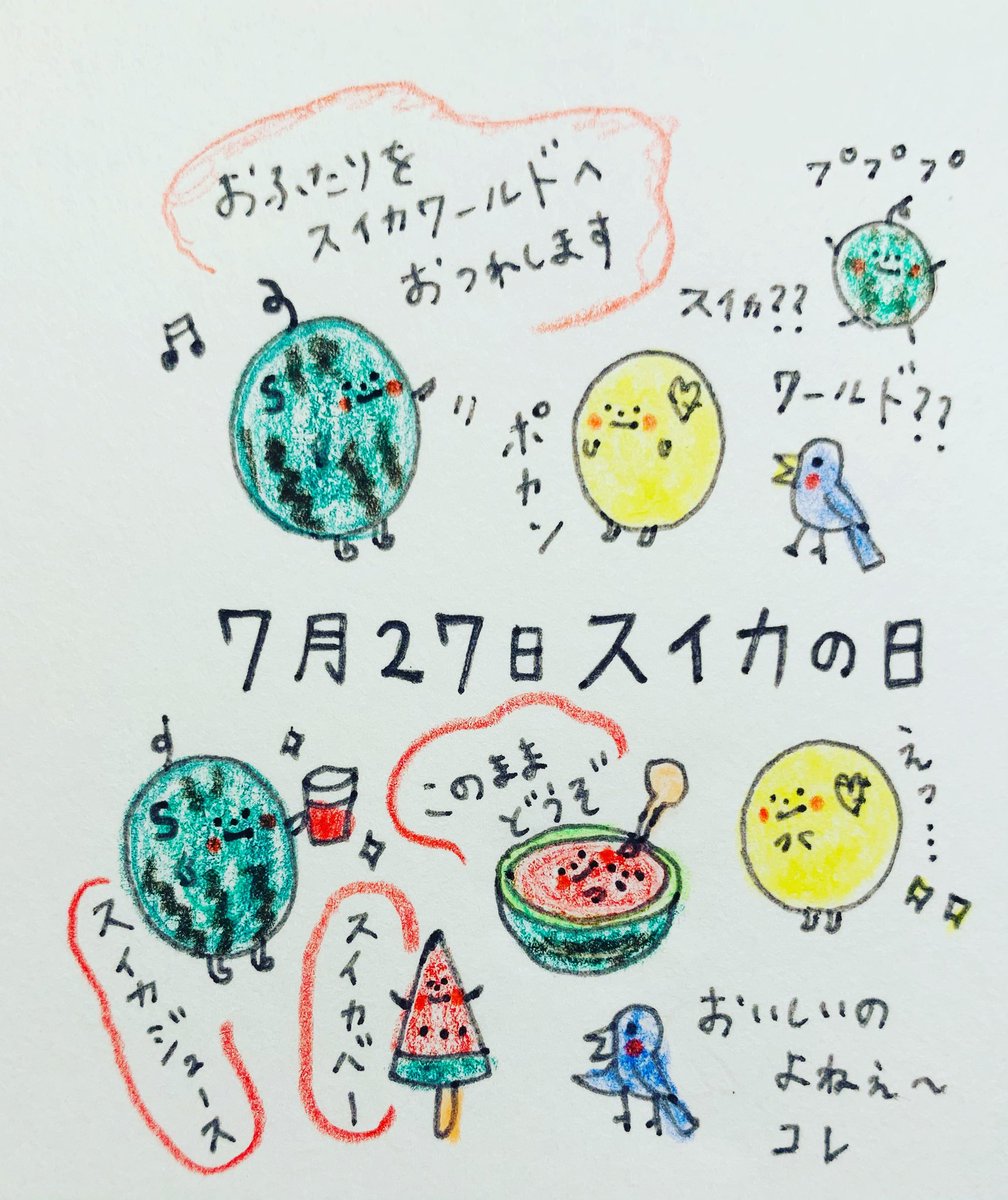 おふたりを
スイカワールドへ
おつれします
プププ
スイカ??
ワールド??
ポカン
S
7月27日スイカの日
このまま
どうぞ
えっ…
S
スイカジュース
スイカバー
おいしいの
よねぇ〜
コレ